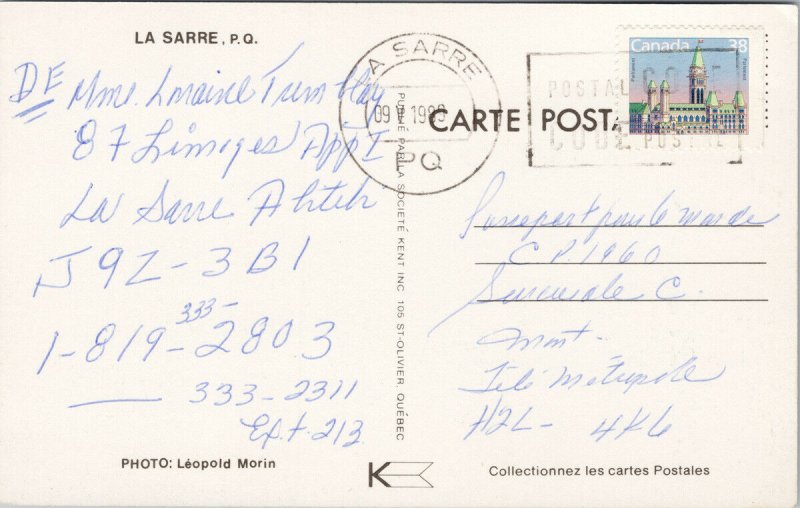 LA SARRE, P.Q.
DE Mme. Loraine Tremblay
87 Limoges App I
La Sarre Abitibi
J9Z-3B1
333-
1-819-2803
333-2311
Ext. 213
PHOTO: Léopold Morin
PUBLIÉ PAR LA SOCIETÉ KENT INC 105 ST-OLIVIER, QUÉBEC
LA SARRE
09 1989
PQ
CARTE POSTALE
Canada 38
Parliament
Parlement
POSTAL CODE
CODE POSTAL
Passeport pour le monde
C.P. 1960
Succursale C.
Mont.
Télé Métropole
H2L- 4K6
K
Collectionnez les cartes Postales